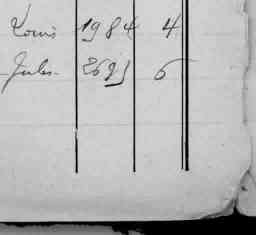 Louis 1984 4
Jules 2691 6